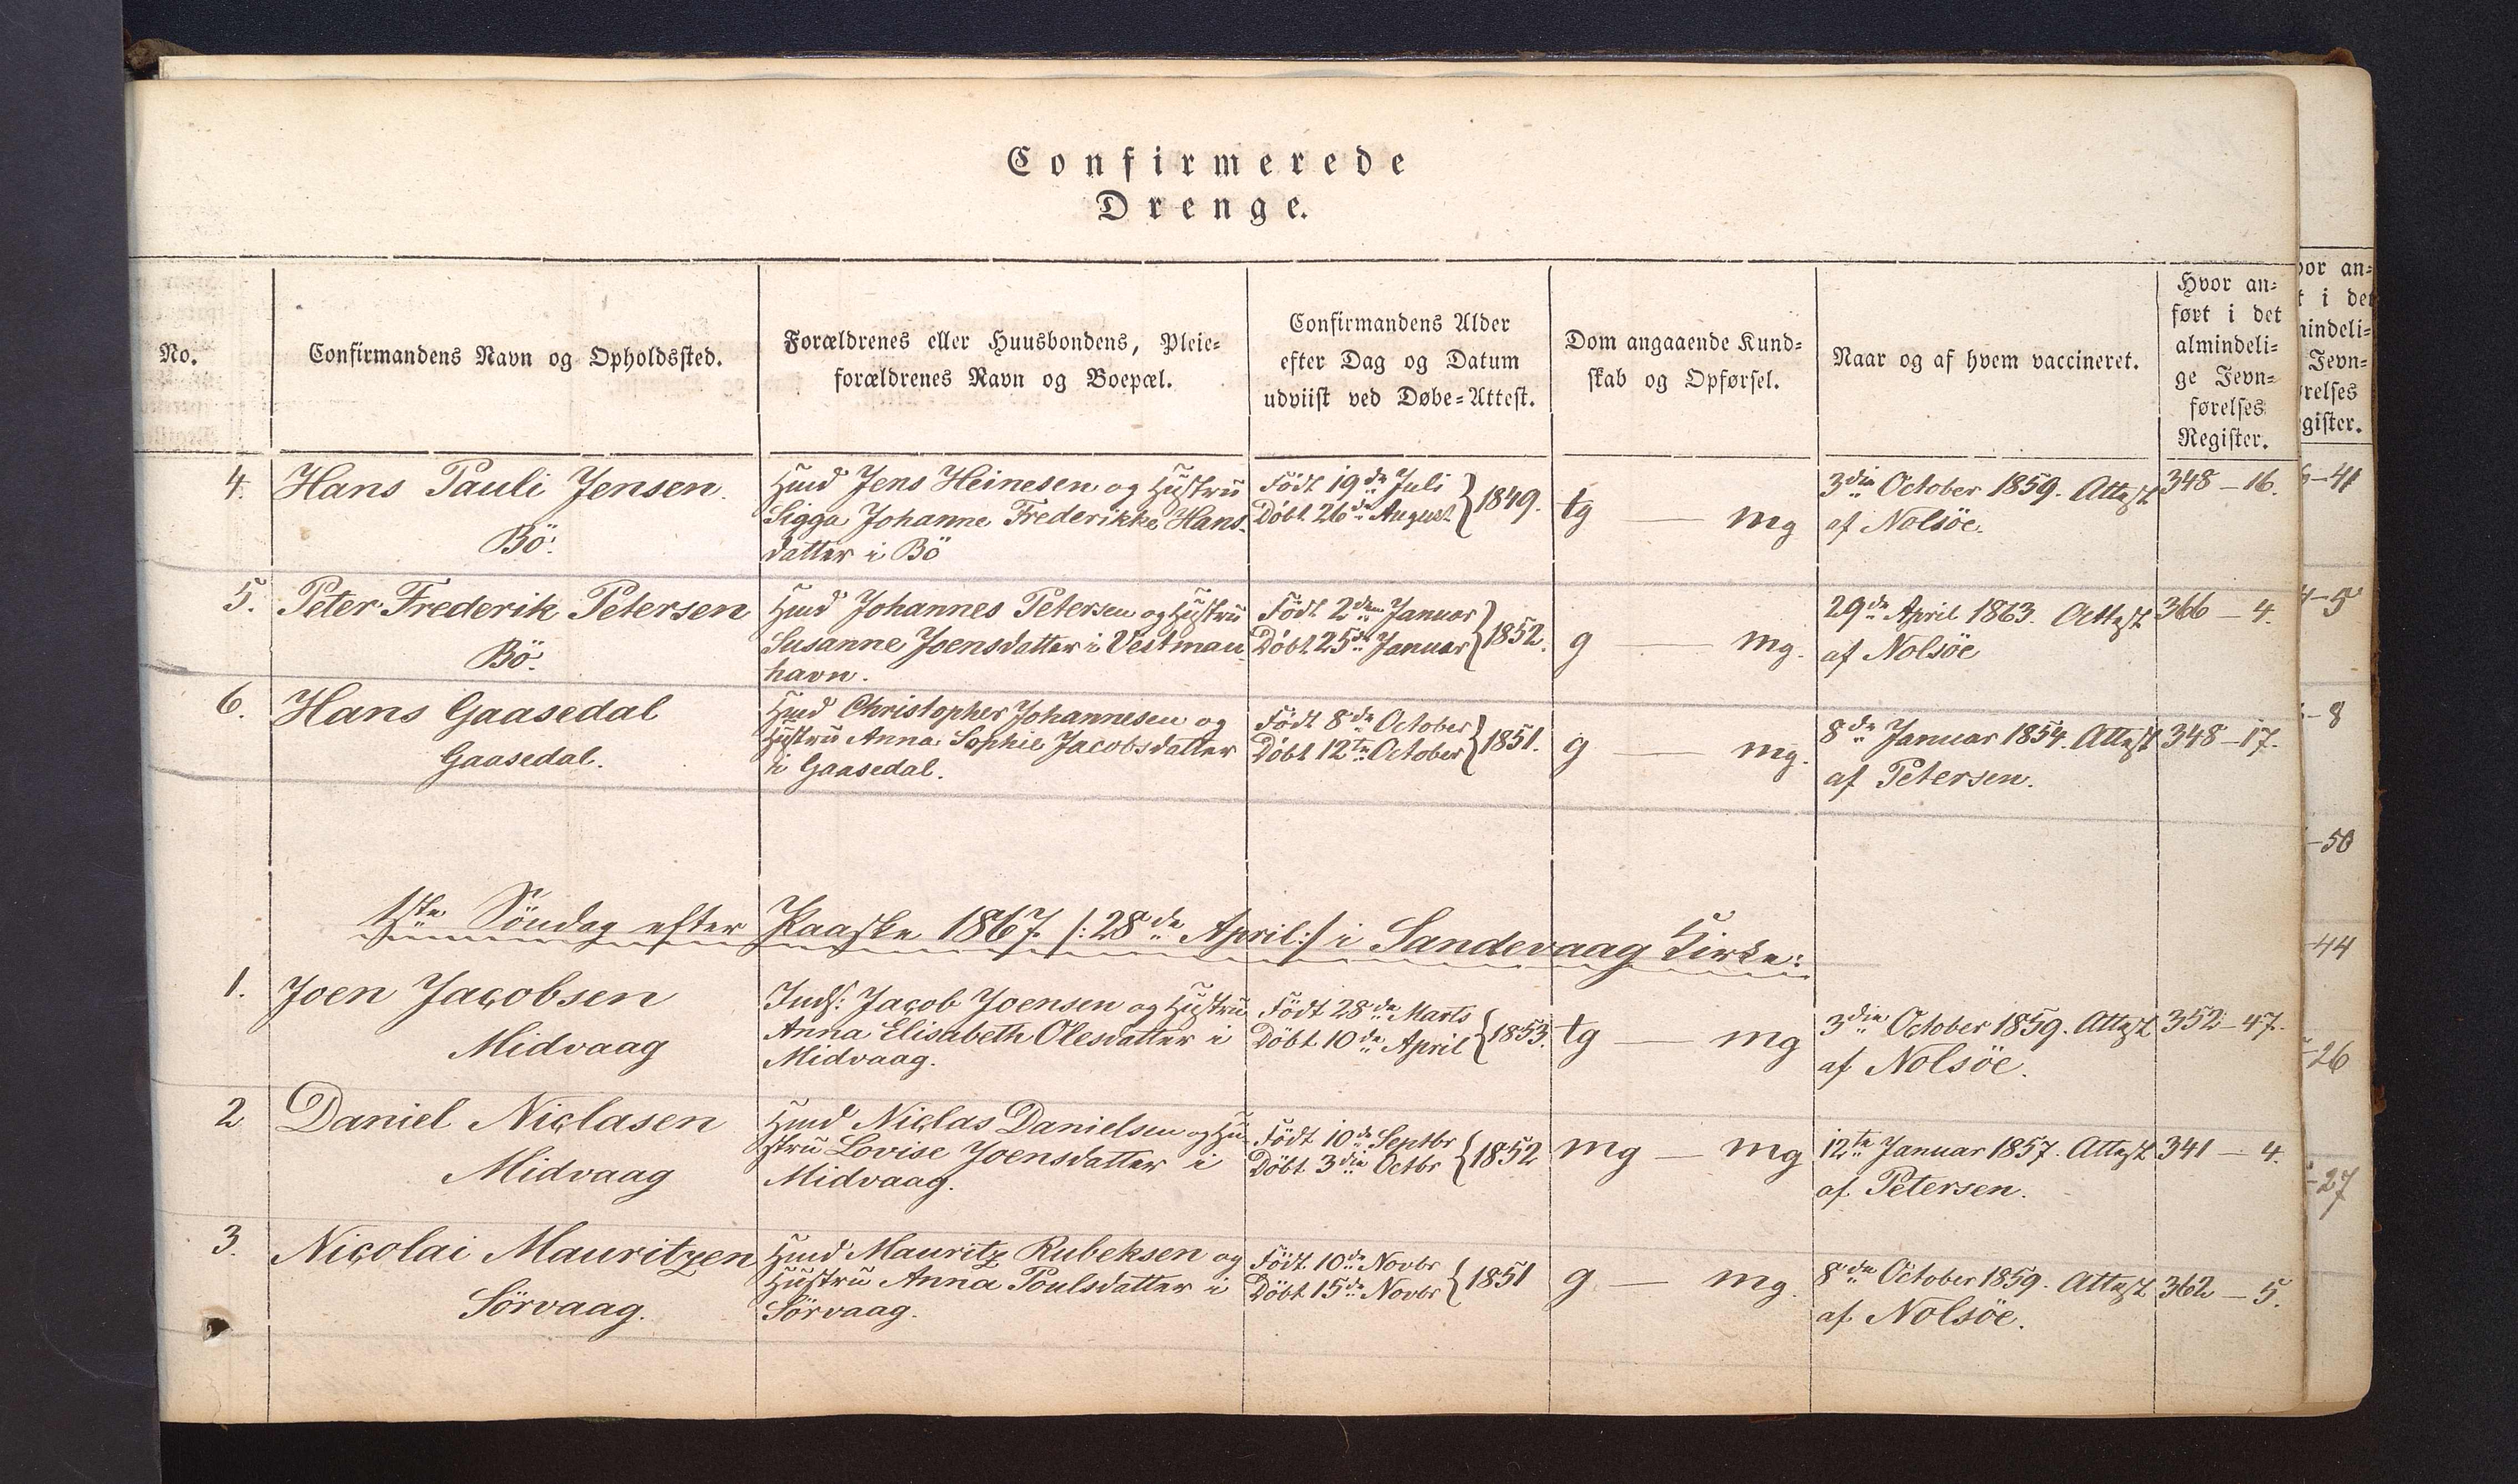 Confirmerede
Drenge.
No.
Confirmandens Navn og Opholdssted.
Forældrenes eller Huusbondens, Pleie-
forældrenes Navn og Boepæl.
Confirmandens Alder
efter Dag og Datum
udviist ved Døbe-Attest.
Dom angaaende Kund-
skab og Opførsel.
Naar og af hvem vaccineret.
Hvor an-
ført i det
almindeli-
ge Jevn-
førelses
Register.
4.
Hans Pauli Jensen.
Bö.
Hmd Jens Heinesen og Hustru
Sigga Johanne Frederikke Hans-
datter i Bö
Födt 19de Juli
Döbt 26de August } 1849.
tg — mg
3die October 1859. Attest
af Nolsöe.
348 – 16.
5.
Peter Frederik Petersen
Bö.
Hmd Johannes Petersen og Hustru
Susanne Joensdatter i Vestman-
havn.
Födt 2den Januar
Döbt 25de Januar } 1852.
g — mg.
29de April 1863. Attest
af Nolsöe
366 – 4.
6.
Hans Gaasedal
Gaasedal.
Hmd Christopher Johannesen og
Hustru Anna Sophie Jacobsdatter
i Gaasedal.
Födt 8de October
Döbt 12te October } 1851.
g — mg.
8de Januar 1854. Attest
af Petersen.
348 – 17.
1ste Söndag efter Paaske 1867. /: 28de April :/ i Sandevaag Kirke:
1.
Joen Jacobsen
Midvaag
Inds: Jacob Joensen og Hustru
Anna Elisabeth Olesdatter i
Midvaag.
Födt 28de Marts
Döbt 10de April { 1853.
tg — mg
3die October 1859. Attest
af Nolsöe.
352 – 47.
2
Daniel Niclasen
Midvaag
Hmd Niclas Danielsen og Hu-
stru Lovise Joensdatter i
Midvaag.
Födt 10de Septbr
Döbt 3die Octbr { 1852
mg — mg
12te Januar 1857. Attest
af Petersen.
341 – 4.
3.
Nicolai Mauritzen
Sörvaag.
Hmd Mauritz Rubeksen og
Hustru Anna Poulsdatter i
Sörvaag.
Födt 10de Novbr
Döbt 15de Novbr { 1851
g — mg.
8de October 1859. Attest
af Nolsöe.
362 – 5.